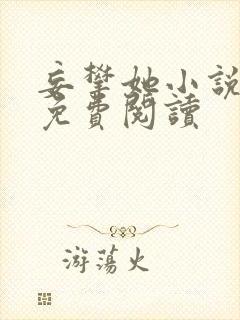 妄攀她小說
免費閱讀
游蕩火